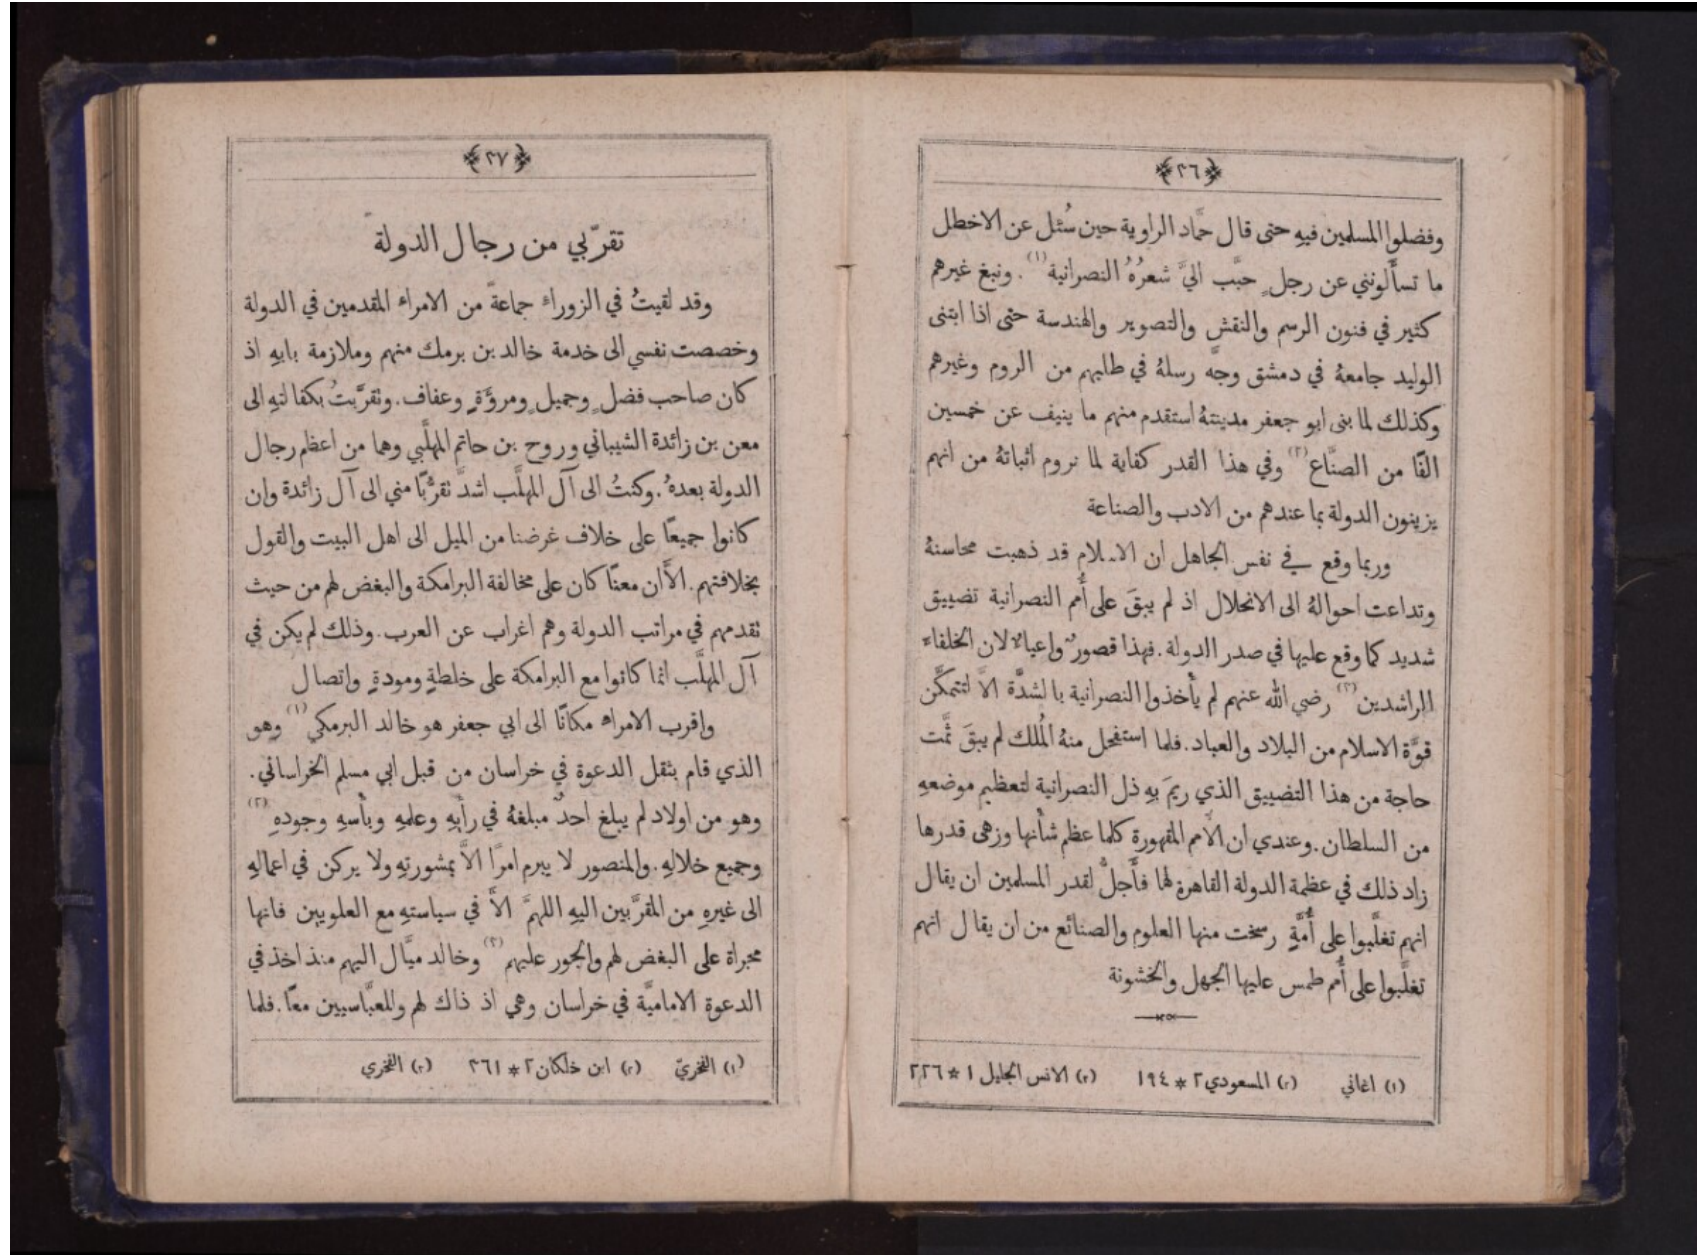 ﴿٣٦﴾
وفضلوا المسلمين فيهِ حتى قال حمَّاد الراوية حين سُئل عن الاخطل
ما تسأَلونني عن رجلٍ حبَّب اليَّ شعرُهُ النصرانية (١). ونبغ غيرهم
كثير في فنون الرسم والنقش والتصوير والهندسة حتى اذا ابتنى
الوليد جامعهُ في دمشق وجَّه رسلهُ في طلبهم من الروم وغيرهم
وكذلك لما بنى ابو جعفر مدينتهُ استقدم منهم ما ينيف عن خمسين
الفًا من الصنَّاع (٢) وفي هذا القدر كفاية لما نروم اثباتهُ من انهم
يزينون الدولة بما عندهم من الادب والصناعة
وربما وقع في نفس الجاهل ان الاسلام قد ذهبت محاسنهُ
وتداعت احوالهُ الى الانحلال اذ لم يبقَ على أُمم النصرانية تضييق
شديد كما وقع عليها في صدر الدولة. فهذا قصورٌ واعياءٌ لان الخلفاء
الراشدين (٣) رضي الله عنهم لم يأخذوا النصرانية بالشدَّة الاَّ لتتمكَّن
قوَّة الاسلام من البلاد والعباد. فلما استفحل منهُ المُلك لم يبقَ ثمَّت
حاجة من هذا التضييق الذي ريمَ بهِ ذل النصرانية لتعظيم موضعهِ
من السلطان. وعندي ان الأُمم المقهورة كلما عظم شأنها وزهى قدرها
زاد ذلك في عظمة الدولة القاهرة لها فأَجلُّ لقدر المسلمين ان يقال
انهم تغلَّبوا على أُمَّةٍ رسخت منها العلوم والصنائع من ان يقال انهم
تغلَّبوا على أُمم طمس عليها الجهل والخشونة
(١) اغاني (٢) المسعودي ٢ * ١٩٤ (٣) الانس الجليل ١ * ٢٢٦
﴿٣٧﴾
تقرّبي من رجال الدولة
وقد لقيتُ في الزوراء جماعةً من الامراء المقدمين في الدولة
وخصصت نفسي الى خدمة خالد بن برمك منهم وملازمة بابهِ اذ
كان صاحب فضلٍ وجميلٍ ومروَّةٍ وعفاف. وتقرَّبتُ بكفالتهِ الى
معن بن زائدة الشيباني وروح بن حاتم المهلَّبي وهما من اعظم رجال
الدولة بعدهُ. وكنتُ الى آل المهلَّب اشدَّ تقرُّبًا مني الى آل زائدة وان
كانوا جميعًا على خلاف غرضنا من الميل الى اهل البيت والقول
بخلافتهم. الاَّ ان معنًا كان على مخالفة البرامكة والبغض لهم من حيث
تقدمهم في مراتب الدولة وهم اغراب عن العرب. وذلك لم يكن في
آل المهلَّب انما كانوا مع البرامكة على خلطةٍ ومودةٍ واتصال
واقرب الامراء مكانًا الى ابي جعفر هو خالد البرمكي (١) وهو
الذي قام بثقل الدعوة في خراسان من قبل ابي مسلم الخراساني.
وهو من اولاد لم يبلغ احدٌ مبلغهُ في رأيهِ وعلمهِ وبأسهِ وجودهِ (٢)
وجميع خلالهِ. والمنصور لا يبرم امرًا الاَّ بمشورتهِ ولا يركن في اعمالهِ
الى غيرهِ من المقرَّبين اليهِ اللهمَّ الاَّ في سياستهِ مع العلويين فانها
مجراة على البغض لهم والجور عليهم (٣) وخالد ميَّال اليهم منذ اخذ في
الدعوة الاماميَّة في خراسان وهي اذ ذاك لهم وللعبَّاسيين معًا. فلما
(١) الفخريّ (٢) ابن خلكان ٢ * ٣٦١ (٣) الفخري